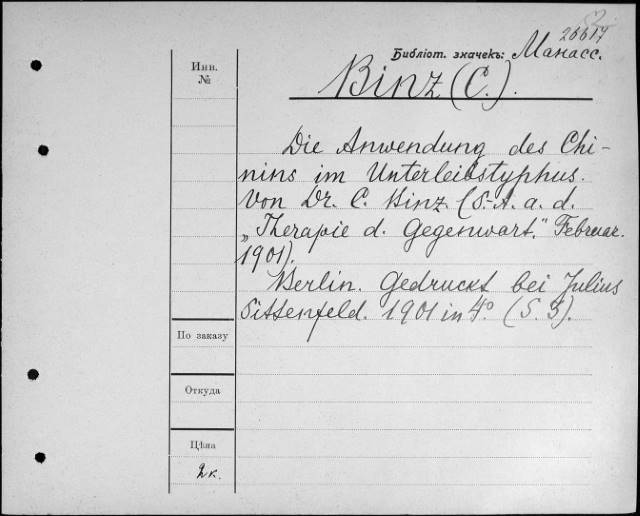 26617
Библіот. значекъ: Манасс.
Инв.
№
Binz (C.).
Die Anwendung des Chi-
nins im Unterleibstyphus.
Von Dr. C. Binz (S.-A. a. d.
„Therapie d. Gegenwart." Februar.
1901).
Berlin. Gedruckt bei Julius
Sittenfeld. 1901 in 4° (S. 3).
По заказу
Откуда
Цѣна
2к.